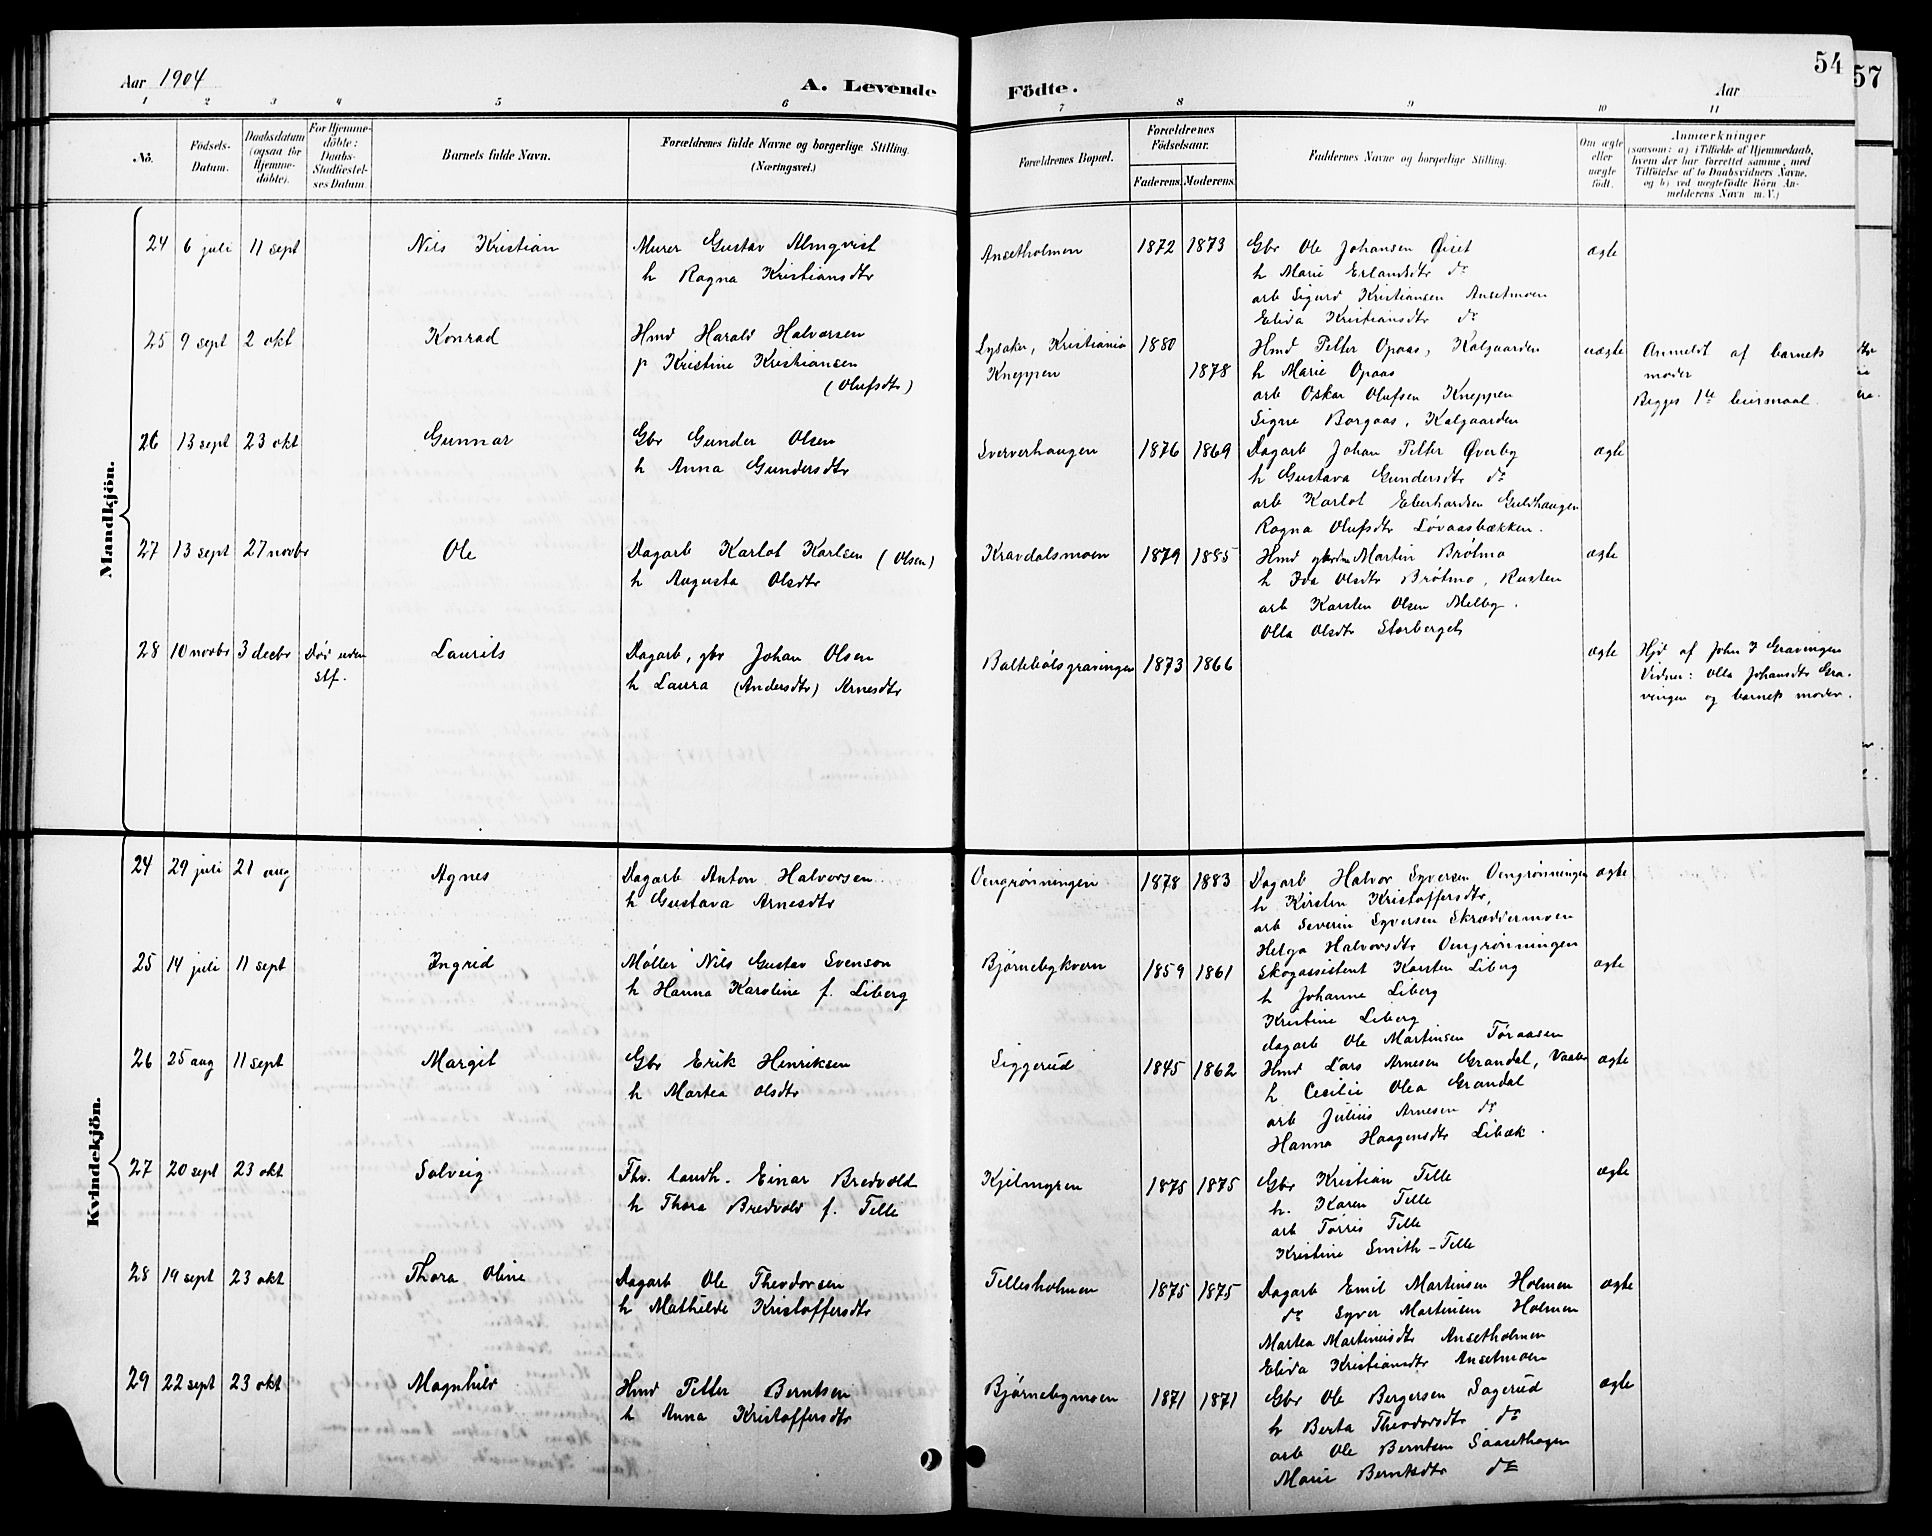 Aar 1904
A. Levende Födte.
Aar
54
57
1 2 3 4 5 6 7 8 9 10 11
No.
Födsels-Datum.
Daabsdatum (ogsaa for Hjemme-döbte).
For Hjemme-döbte: Daabs-Stadfæstel-ses Datum
Barnets fulde Navn.
Forældrenes fulde Navne og borgerlige Stilling. (Næringsvei.)
Forældrenes Bopæl.
Forældrenes Födselsaar.
Faderens. Moderens.
Faddernes Navne og borgerlige Stilling.
Om ægte eller uægte födt.
Anmærkninger
(saasom: a) i Tilfælde af Hjemmedaab, hvem der har forrettet samme, med Tilföielse af to Daabsvidners Navne, og b) ved uægtefödte Börn An-melderens Navn m.V.)
Mandkjön.
24 6 juli 11 sept Nils Kristian Murer Gustav Almqvist Ansetholmen 1872 1873 Gbr Ole Johansen Øiset ægte
h Ragna Kristiansdtr h Marie Erlandsdtr do
arb Sigurd Kristiansen Ansetmoen
Elida Kristiansdtr do
25 9 sept 2 okt Konrad Hmd Harald Halvorsen Lysaker, Kristiania 1880 Hmd Petter Opaas, Kalgaarden uægte Anmeldt af barnets
p Kristine Kristiansen Kneppen 1878 h Marie Opaas moder
(Olufsdtr) arb Oskar Olufsen Kneppen Begges 1ste leiermaal.
Signe Borgaas, Kalgaarden
26 13 sept 23 okt Gunnar Gbr Gunder Olsen Sververhaugen 1876 1869 Dagarb Johan Petter Øverby ægte
h Anna Gundersdtr h Gustava Gundersdtr do
arb Karlot Eberhardsen Guldhaugen
Ragna Olufsdtr Løvaasbækken.
27 13 sept 27 novbr Ole Dagarb Karlot Karlsen (Olsen) Kravdalsmoen 1879 1885 Hmd Martin Brøtmo ægte
h Augusta Olsdtr h Ida Olsdtr Brøtmo, Rusten
arb Karsten Olsen Melby.
Olla Olsdtr Storberget
28 10 novbr 3 decbr Død uden stf. Laurits Dagarb, gbr Johan Olsen Baltebølsgravningen 1873 1866 ægte Hjd af John J Gravingen
h Laura (Andersdtr) Arnesdtr Vidner: Olla Johansdtr Gra-
vingen og barnets moder.
Kvindekjön.
24 29 juli 21 aug Agnes Dagarb Anton Halvorsen Oengrønningen 1878 1883 Dagarb Halvor Syversen Oengrønningen ægte
h Gustava Arnesdtr h Kirsten Kristoffersdtr,
arb Severin Syversen Skræddermoen
Helga Halvorsdtr Oengrønningen
25 14 juli 11 sept Ingrid Møller Nils Gustav Svenson Bjørnebykvern 1859 1861 Skogassistent Karsten Liberg ægte
h Hanna Karoline f. Liberg h Johanne Liberg
Kristine Liberg
dagarb Ole Martinsen Tøraasen
26 25 aug 11 sept Margit Gbr Erik Henriksen Siggerud 1845 1862 Hmd Lars Arnesen Grandal, Vaaler ægte
h Martea Olsdtr h Cecilie Olea Grandal
arb Julius Arnesen do
Hanna Haagensdtr Libæk.
27 20 sept 23 okt Solveig Fhv. landh. Einar Bredvold Kjelmyren 1875 1875 Gbr Kristian Telle ægte
h Thora Bredvold f. Telle h. Karen Telle
arb Torris Telle
Kristine Smith-Telle
28 19 sept 23 okt Thora Oline Dagarb Ole Theodorsen Tellesholmen 1875 1875 Dagarb Emil Martinsen Holmen ægte
h Mathilde Kristoffersdtr do Syver Martinsen Holmen
Martea Martinusdtr Ansetholmen
Elida Kristiansdtr Ansetmoen
29 22 sept 23 okt Magnhild Hmd Petter Berntsen Bjørnebymoen 1871 1871 Gbr Ole Bergersen Sagerud ægte
h Anna Kristoffersdtr h Berta Theodorsdtr do
arb Ole Berntsen Saasethagen
Marie Berntsdtr do